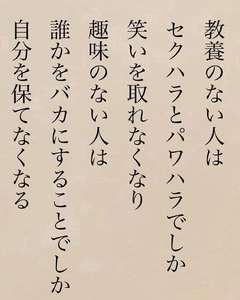 教養のない人は
セクハラとパワハラでしか
笑いを取れなくなり
趣味のない人は
誰かをバカにすることでしか
自分を保てなくなる